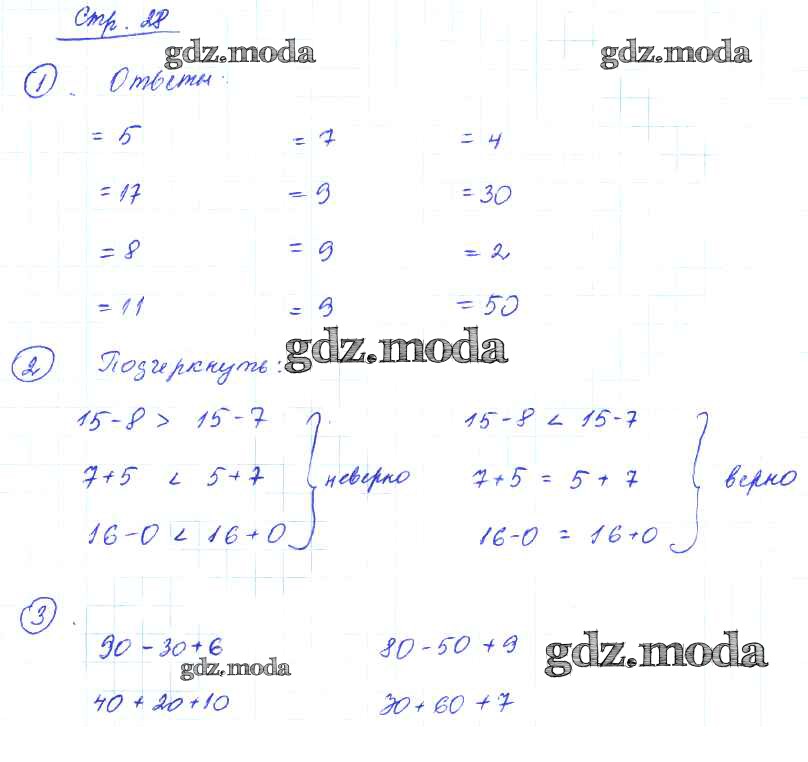 Стр. 28
gdz.moda gdz.moda
1. Ответы:
= 5 = 7 = 4
= 17 = 9 = 30
= 8 = 9 = 2
= 11 = 9 = 50
2 Подчеркнуть: gdz.moda
15-8 > 15-7 15-8 < 15-7
7+5 < 5+7 неверно 7+5 = 5+7 верно
16-0 < 16+0 16-0 = 16+0
3.
90-30+6 80-50+9 gdz.moda
gdz.moda
40+20+10 30+60+7